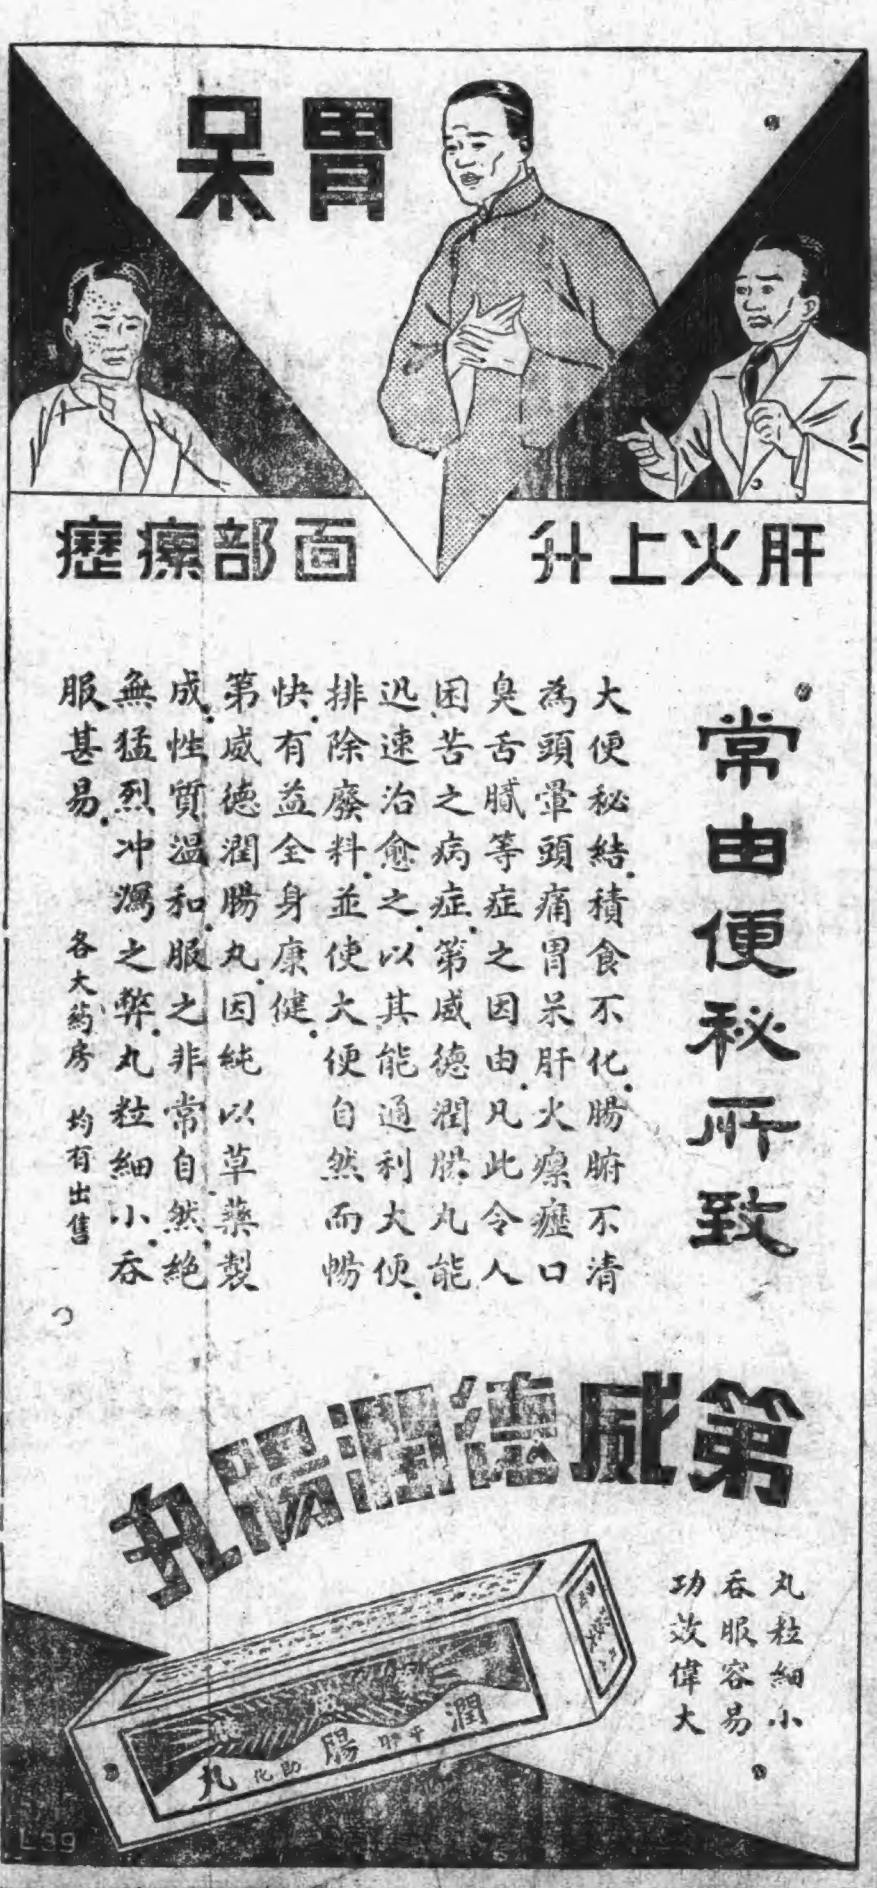 胃呆
肝火上升
面部瘰癧
常由便秘所致
大便秘結積食不化腸腑不清
為頭暈頭痛胃呆肝火瘰癧口
臭舌膩等症之因由凡此令人
困苦之病症第威德潤腸丸能
迅速治愈之以其能通利大便
排除廢料並使大便自然而暢
快有益全身康健
第威德潤腸丸因純以草藥製
成性質溫和服之非常自然絕
無猛烈冲瀉之弊丸粒細小吞
服甚易
各大葯房 均有出售
第威德潤腸丸
丸粒細小
吞服容易
功效偉大
潤腸丸
平肝
助化
L39